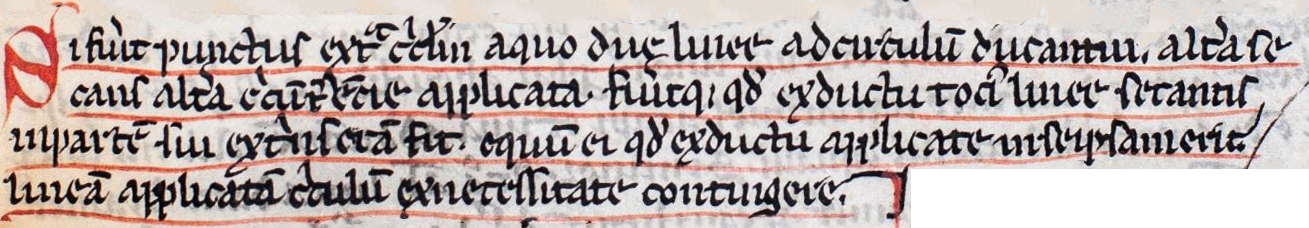 Si fuĩt punctus ext͛ ccłm a quo duę linee ad circulũ ducantur. alt̃a se
cans alt̃a c̃cũf̃ẽcie applicata. fuĩtq; qđ ex ductu toci᷒ linee secantis
in partẽ sui ext̃insecã fit. equũ ei qđ ex ductu applicate in seipsam erit
lineã applicatã c̃culũ ex necessitate contingere.